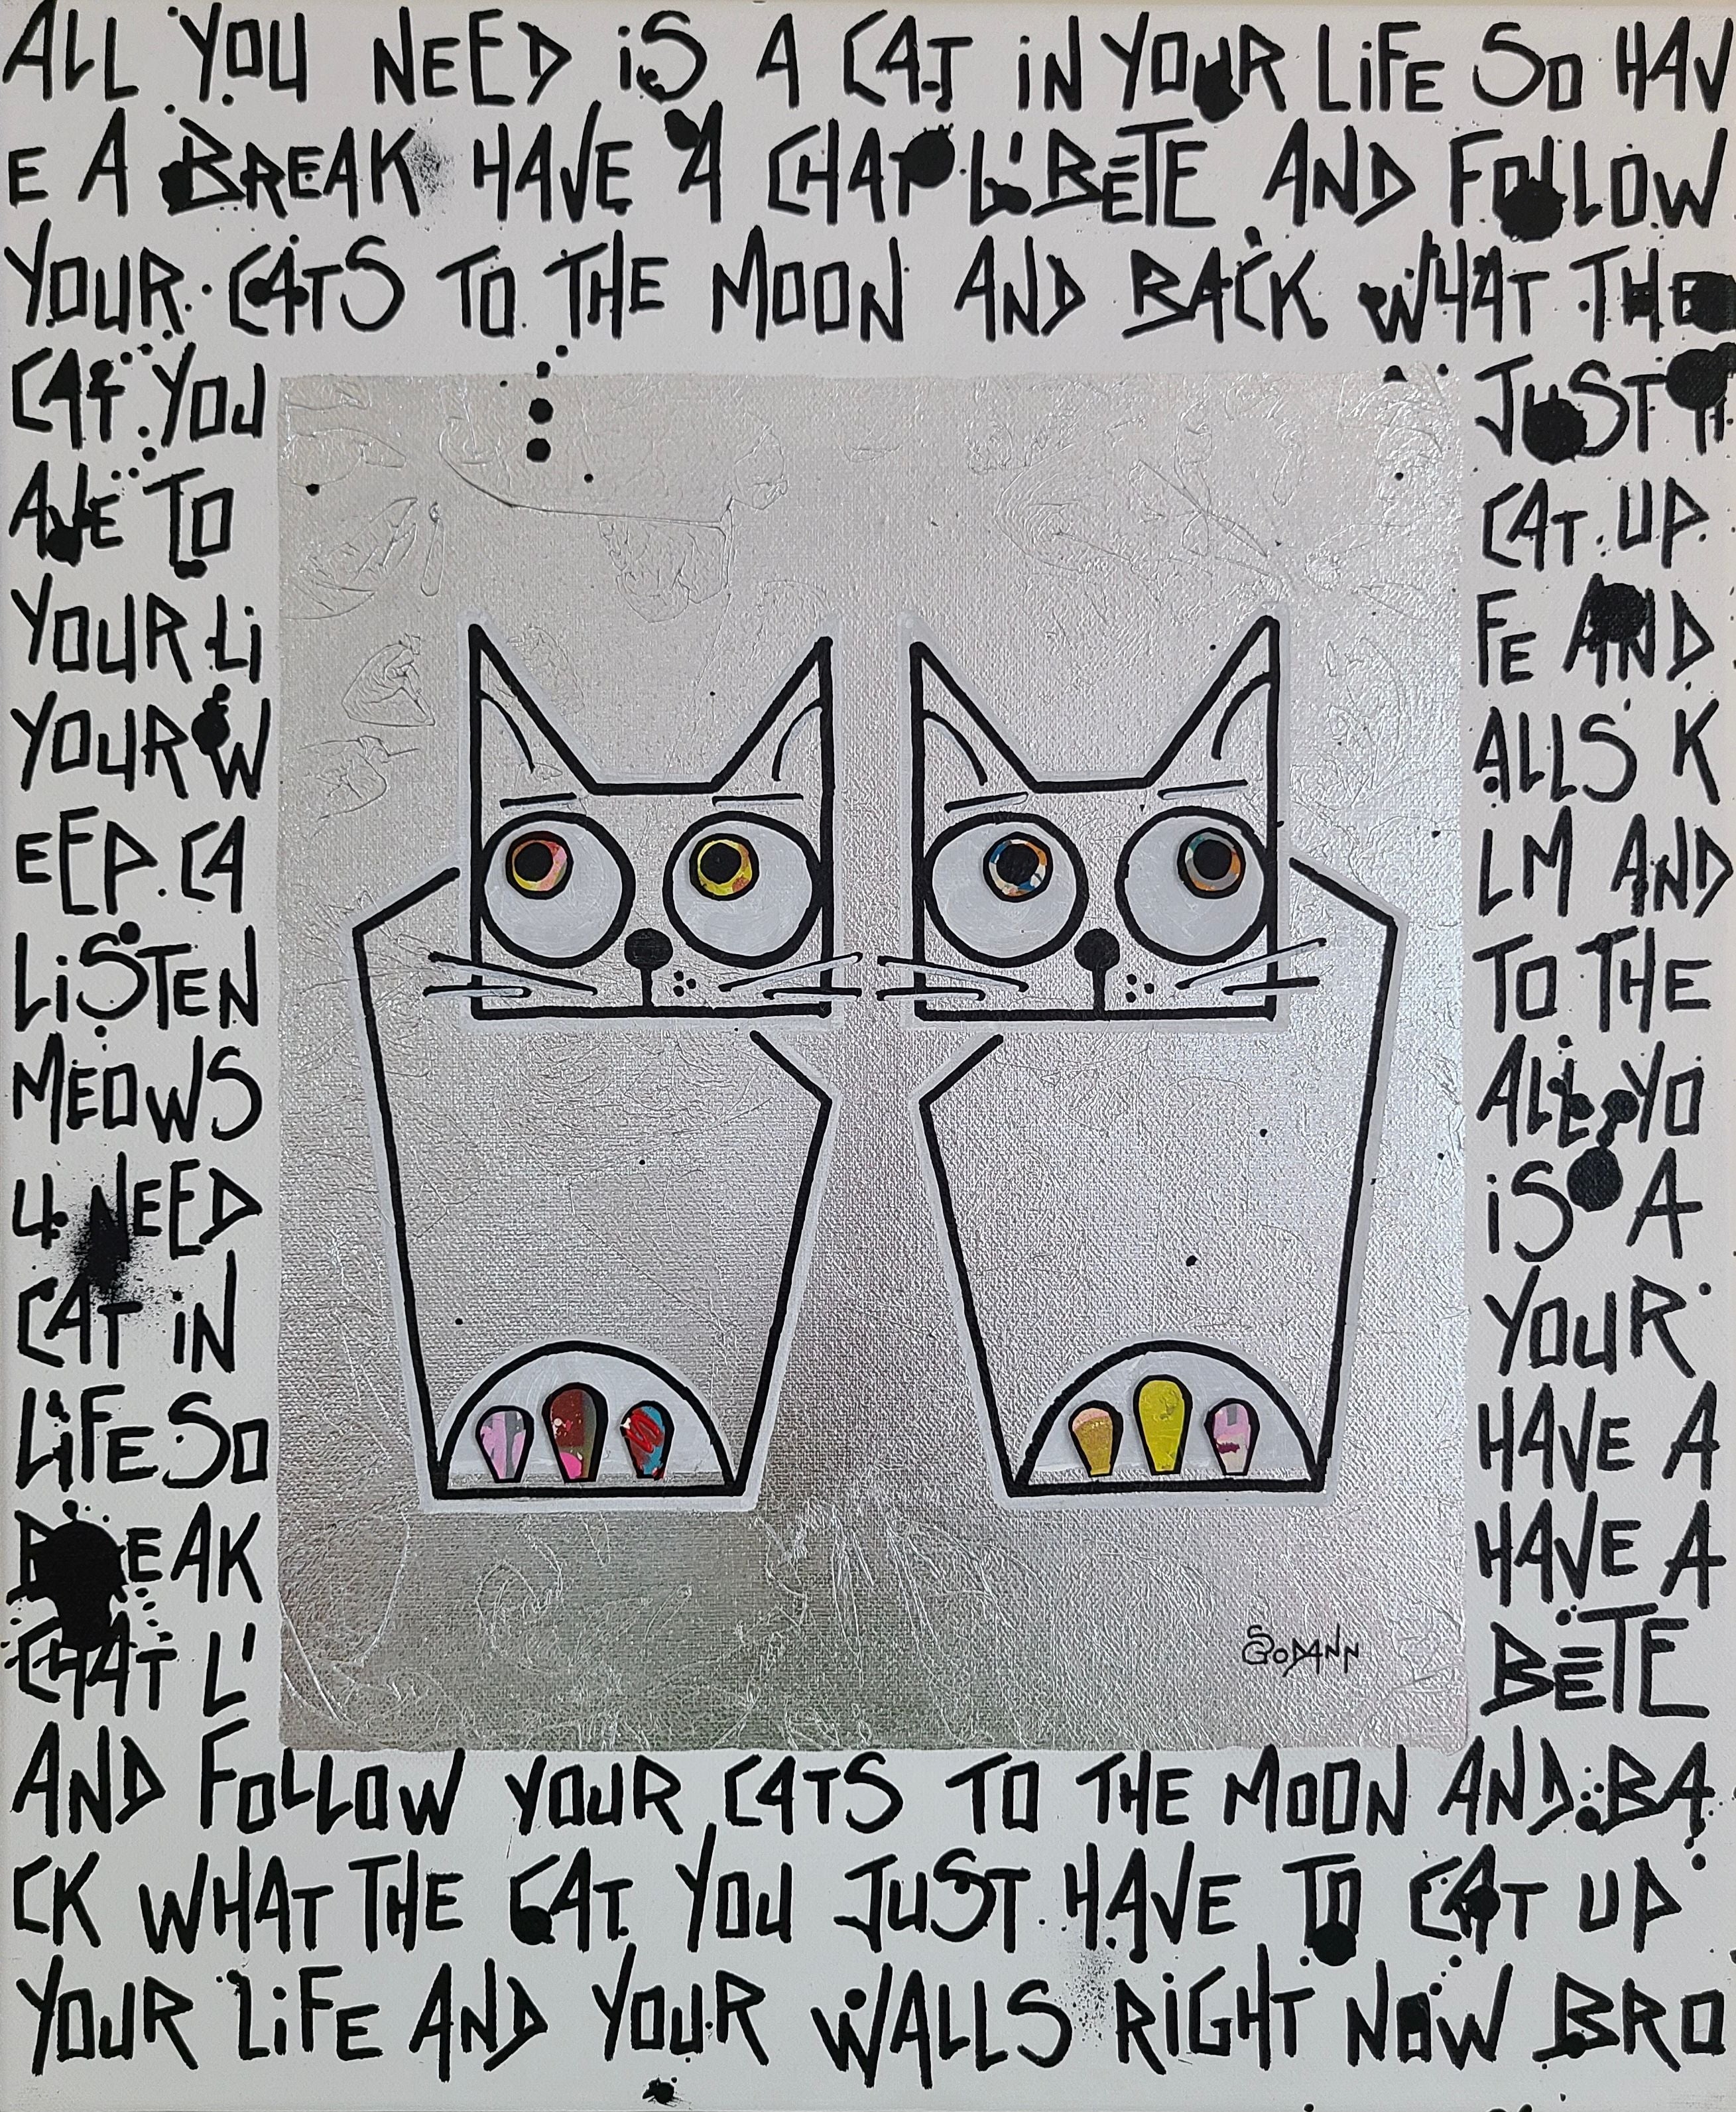 ALL YOU NEED iS A CAT iN YOUR LiFE SO HAV
E A BREAK HAVE A CHAT L'BÊTE AND FOLLOW
YOUR CATS TO THE MOON AND BACK WHAT THE
CAT YOU JUST H
AVE TO CAT UP
YOUR Li FE AND
YOUR W ALLS K
EEP CA LM AND
LiSTEN TO THE
MEOWS ALL YO
U NEED iS A
CAT iN YOUR
LiFE SO HAVE A
BREAK HAVE A
CHAT L' BÊTE
SGODANN
AND FOLLOW YOUR CATS TO THE MOON AND BA
CK WHAT THE CAT YOU JUST HAVE TO CAT UP
YOUR LiFE AND YOUR WALLS RiGHT NOW BRO